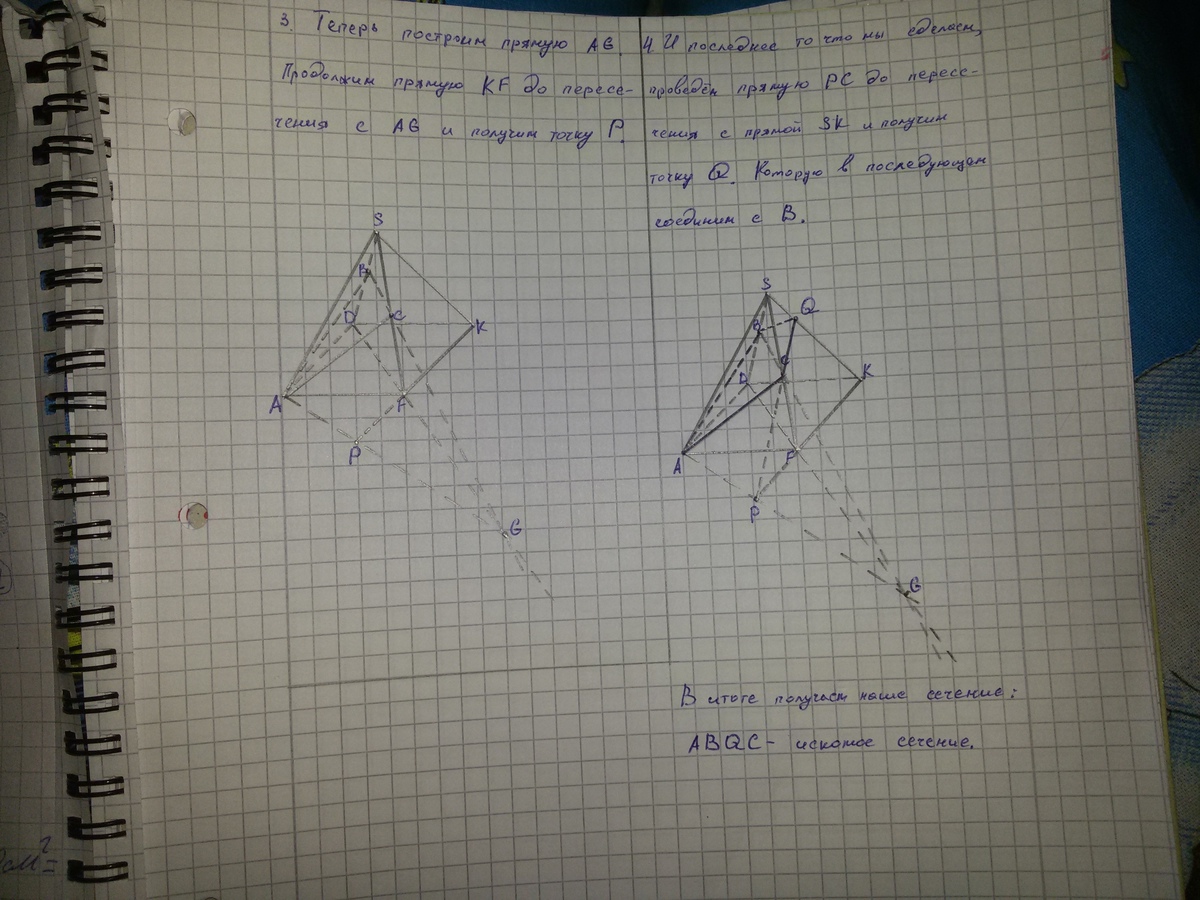 3. Теперь построим прямую AG.
Продолжим прямую KF до пересе-
чения с AG и получим точку P.
S
B
D
C
K
A
F
P
G
4. И последнее то что мы сделаем,
проведём прямую PC до пересе-
чения с прямой SK и получим
точку Q. Которую в последующем
соединим с B.
S
Q
B
C
D
K
A
F
P
G
В итоге получаем наше сечение:
ABQC - искомое сечение.